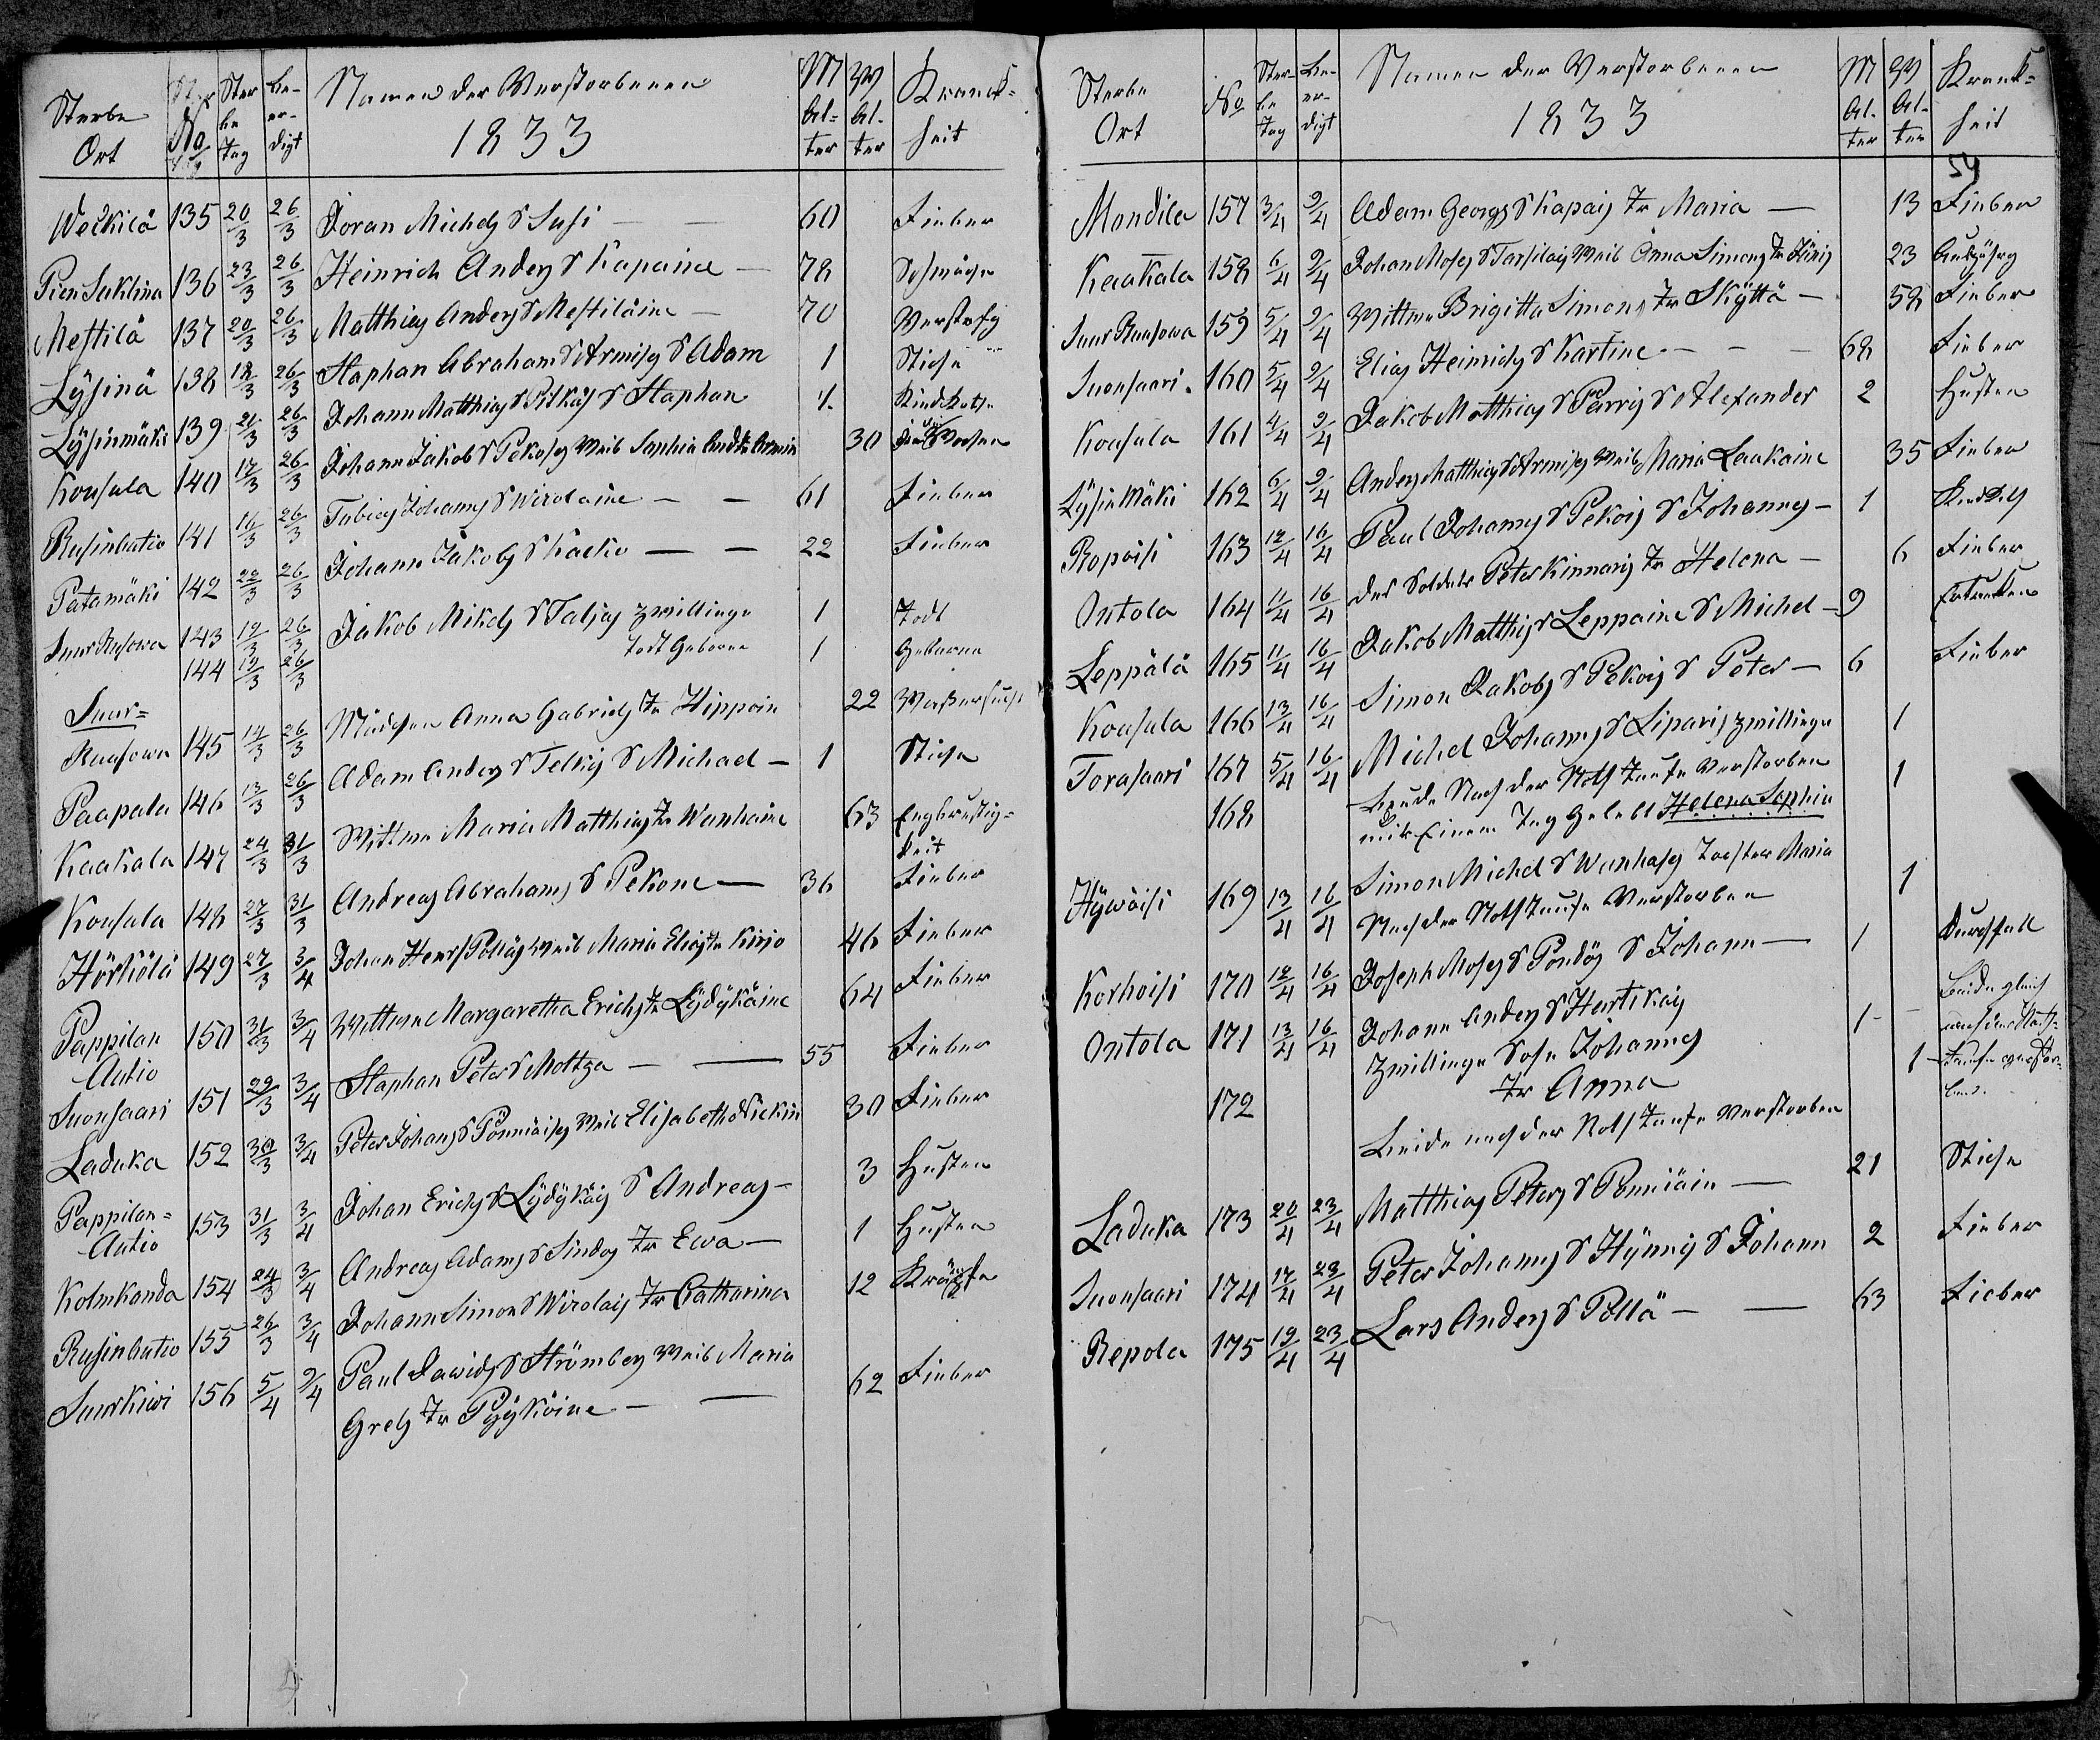 Sterbe Ort No Ster be Tag Be- er- digt Namen der Verstorbenen 1833 M Al- ter W Al- ter Krank- heit
Weikilä 135 20/3 26/3 Joran Michels S Susi — 60 Fieber
Pien Suklina 136 23/3 26/3 Heinrich Anders S Kapaine — 78 Schwäche
Mestilä 137 20/3 26/3 Matthias Anders S Mestiläine — 70
Lysinä 138 18/3 26/3 Staphan Abraham S Armises S Adam 1 Stiche
Lysinmäki 139 21/3 26/3 Johann Matthias S Pitkäs S Staphan
Kousula 140 17/3 26/3 Johann Jakob S Pekoses Weib Sophia 30
Rusinbutio 141 16/3 26/3 Tobias Johannes S Wirolaine — — 61 Fieber
Patamäki 142 22/3 26/3 Johann Jakobs S Kaeko — — 22 Fieber
Suur Rusowa 143 19/3 26/3 Jakob Mikels S Taljas Zwillinge 1 Todt
144 19/3 26/3 todt Geborne 1 Geborne
Suur=
Ruusowa 145 14/3 26/3 Mädchen Anna Gabriels Tr Hippoin 22 Waßersucht
Paapala 146 13/3 26/3 Adam Anders S Telkis S Michael — 1 Stiche
Kaakala 147 24/3 31/3 Wittwe Maria Matthias Tr Wanhaine 63 Engbrustig=
keit
Kousula 148 27/3 31/3 Andreas Abrahams S Pekone — 36 Fieber
Hörhölä 149 27/3 3/4 Johan Henrs Pölläs Weib Maria Elias Tr Kirjo 46 Fieber
Pappilan 150 31/3 3/4 Wittwe Margaretha Erichs Tr Lydykäine 64 Fieber
Autio
Suonsaari 151 29/3 3/4 Staphan Peter S Mottza — — 55 Fieber
Laduka 152 30/3 3/4 Peter Johans S Pönniäises Weib Elisabeth Nickin 30 Fieber
Pappilan= 153 31/3 3/4 Johan Erichs S Lydykäis S Andreas — 3 Husten
Autio
Kolmkanda 154 24/3 3/4 Andreas Adams S Sindos Tr Ewa — 1 Husten
Rusinbutio 155 26/3 3/4 Johann Simon S Wirolais Tr Catharina 12
Suurkiwi 156 5/4 9/4 Paul Dawids S Strömberg Weib Maria 62 Fieber
Grels Tr Pyyköine — —
Sterbe Ort No Ster- be Tag Be- er- digt Namen der Verstorbenen 1833 M Al- ter W Al- ter Krank= heit
54
Mondila 157 3/4 9/4 Adam Georgs S Kapais Tr Maria — 13 Fieber
Kaakala 158 6/4 9/4 Johan Moses S Tarsilais Weib Anna Simons Tr 23
Suur Ruusowa 159 5/4 9/4 Wittwe Brigitta Simons Tr Skyttä — 58 Fieber
Suonsaari 160 5/4 9/4 Elias Heinrichs S Kartine — — — 68 Fieber
Kousula 161 4/4 9/4 Jakob Matthias S Parris S Alexander 2 Husten
Lysinmäki 162 6/4 9/4 Anders Matthias S Armises Weib Maria Laukaine 35 Fieber
Ropoisi 163 12/4 16/4 Paul Johannes S Pekois S Johannes — 1
Ontola 164 11/4 16/4 des Soldats Peter Kinnaris Tr Helena — 6 Fieber
Leppälä 165 11/4 16/4 Jakob Matthias S Leppaine S Michel — 9 Ertrunken
Kousula 166 13/4 16/4 Simon Jakobs S Pekois S Peter — 6 Fieber
Torasaari 167 5/4 16/4 Michel Johannes S Liparis Zwillinge 1
168 Beyde Nach der Noth Taufe Verstorben 1
nur Einen Tag Gelebt Helena Sophia
Hywöisi 169 13/4 16/4 Simon Michel S Wanhases Tochter Maria 1
Nach der Noth Taufe Verstorben
Korhoisi 170 12/4 16/4 Joseph Moses S Pöndös S Johann — 1 Durchfall
Ontola 171 13/4 16/4 Johann Anders S Hartikais 1 - Beide gleich
Zwillinge Sohn Johannes nach der Noth=
172 Tr Anna 1 - Taufe gestor=
ben.
Beide nach der Noth Taufe Verstorben
Laduka 173 20/4 23/4 Matthias Peters S Ponniäin — 21 Stiche
Suonsaari 174 17/4 23/4 Peter Johannes S Hynnis S Johann 2 Fieber
Repola 175 19/4 23/4 Lars Anders S Pöllä — — 63 Fieber